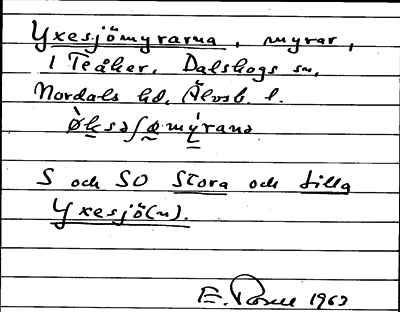 Yxesjömyrarna, myrar,
i Teåker, Dalskogs sn,
Nordals hd, Älvsb. l.
S och SO Stora och Lilla
Yxesjö(n).
E. 1967